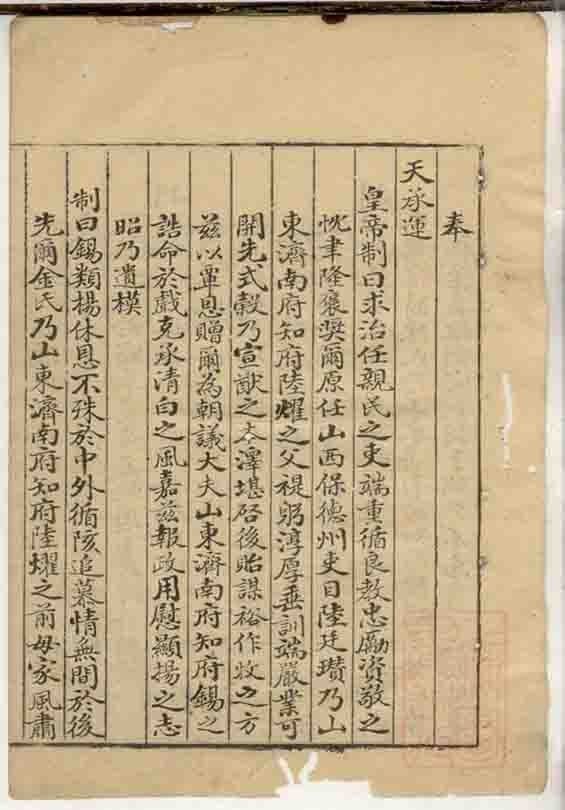 奉
天承運
皇帝制曰求治任親民之吏端重循良教忠勵資敬之
忱聿隆褒奬爾原任山西保德州吏目陸廷瓚乃山
東濟南府知府陸燿之父禔躬淳厚垂訓端嚴業可
開先式穀乃宣猷之本澤堪啓後貽謀裕作牧之方
兹以覃恩贈爾為朝議大夫山東濟南府知府錫之
誥命於戲克承清白之風嘉兹報政用慰顯揚之志
昭乃遺模
制曰錫類揚休恩不殊於中外循陔追慕情無間於後
先爾金氏乃山東濟南府知府陸燿之前母家風肅